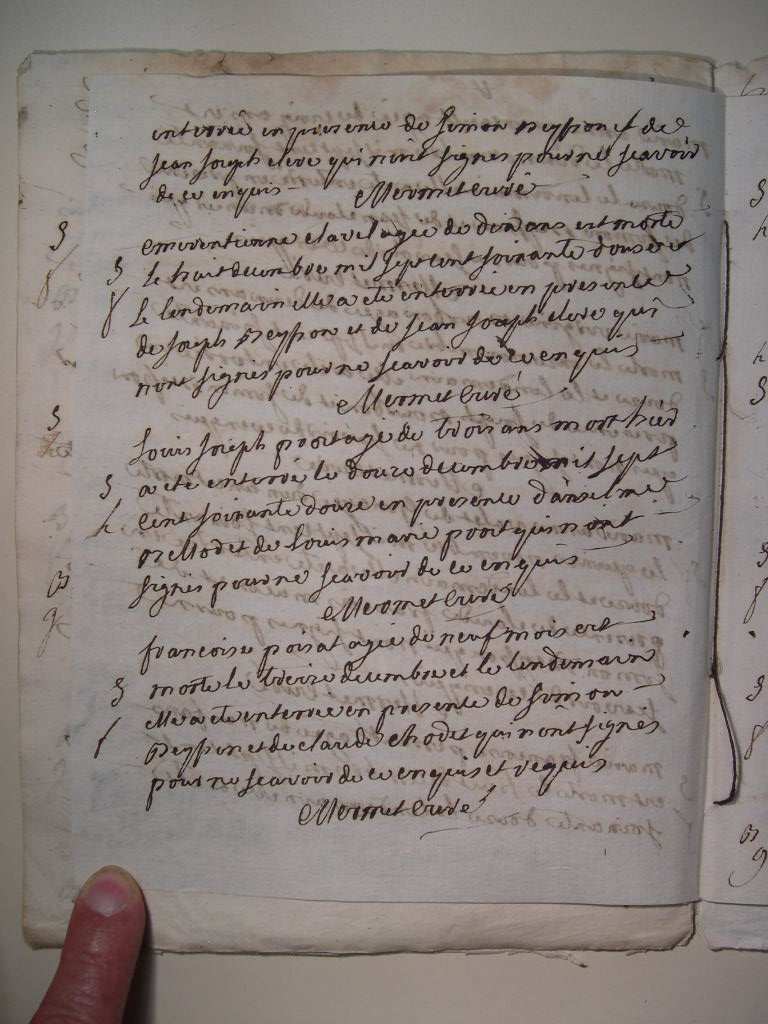 enterrée en presence de simon peysson et de
jean joseph cleve qui n'ont signés pour ne scavoir
de ce enquis
Mermet curé
emerentienne clavel agée de dix ans est morte
le huit decembre mil sept cent soixante douze et
le lendemain elle a eté enterrée en presence
de joseph peysson et de jean joseph cleve qui
n'ont signés pour ne scavoir de ce enquis
Mermet Curé
Louis joseph agé de trois ans mort hier
a eté enterré le douze decembre mil sept
cent soixante douze en presence d'anselme
et de Louis marie qui n'ont
signés pour ne scavoir de ce enquis
Mermet Curé
francoise poisat agée de neuf mois est
morte le treize decembre et le lendemain
elle a eté enterrée en presence de simon
peysson et de claude chodet qui n'ont signés
pour ne scavoir de ce enquis et requis
Mermet Curé